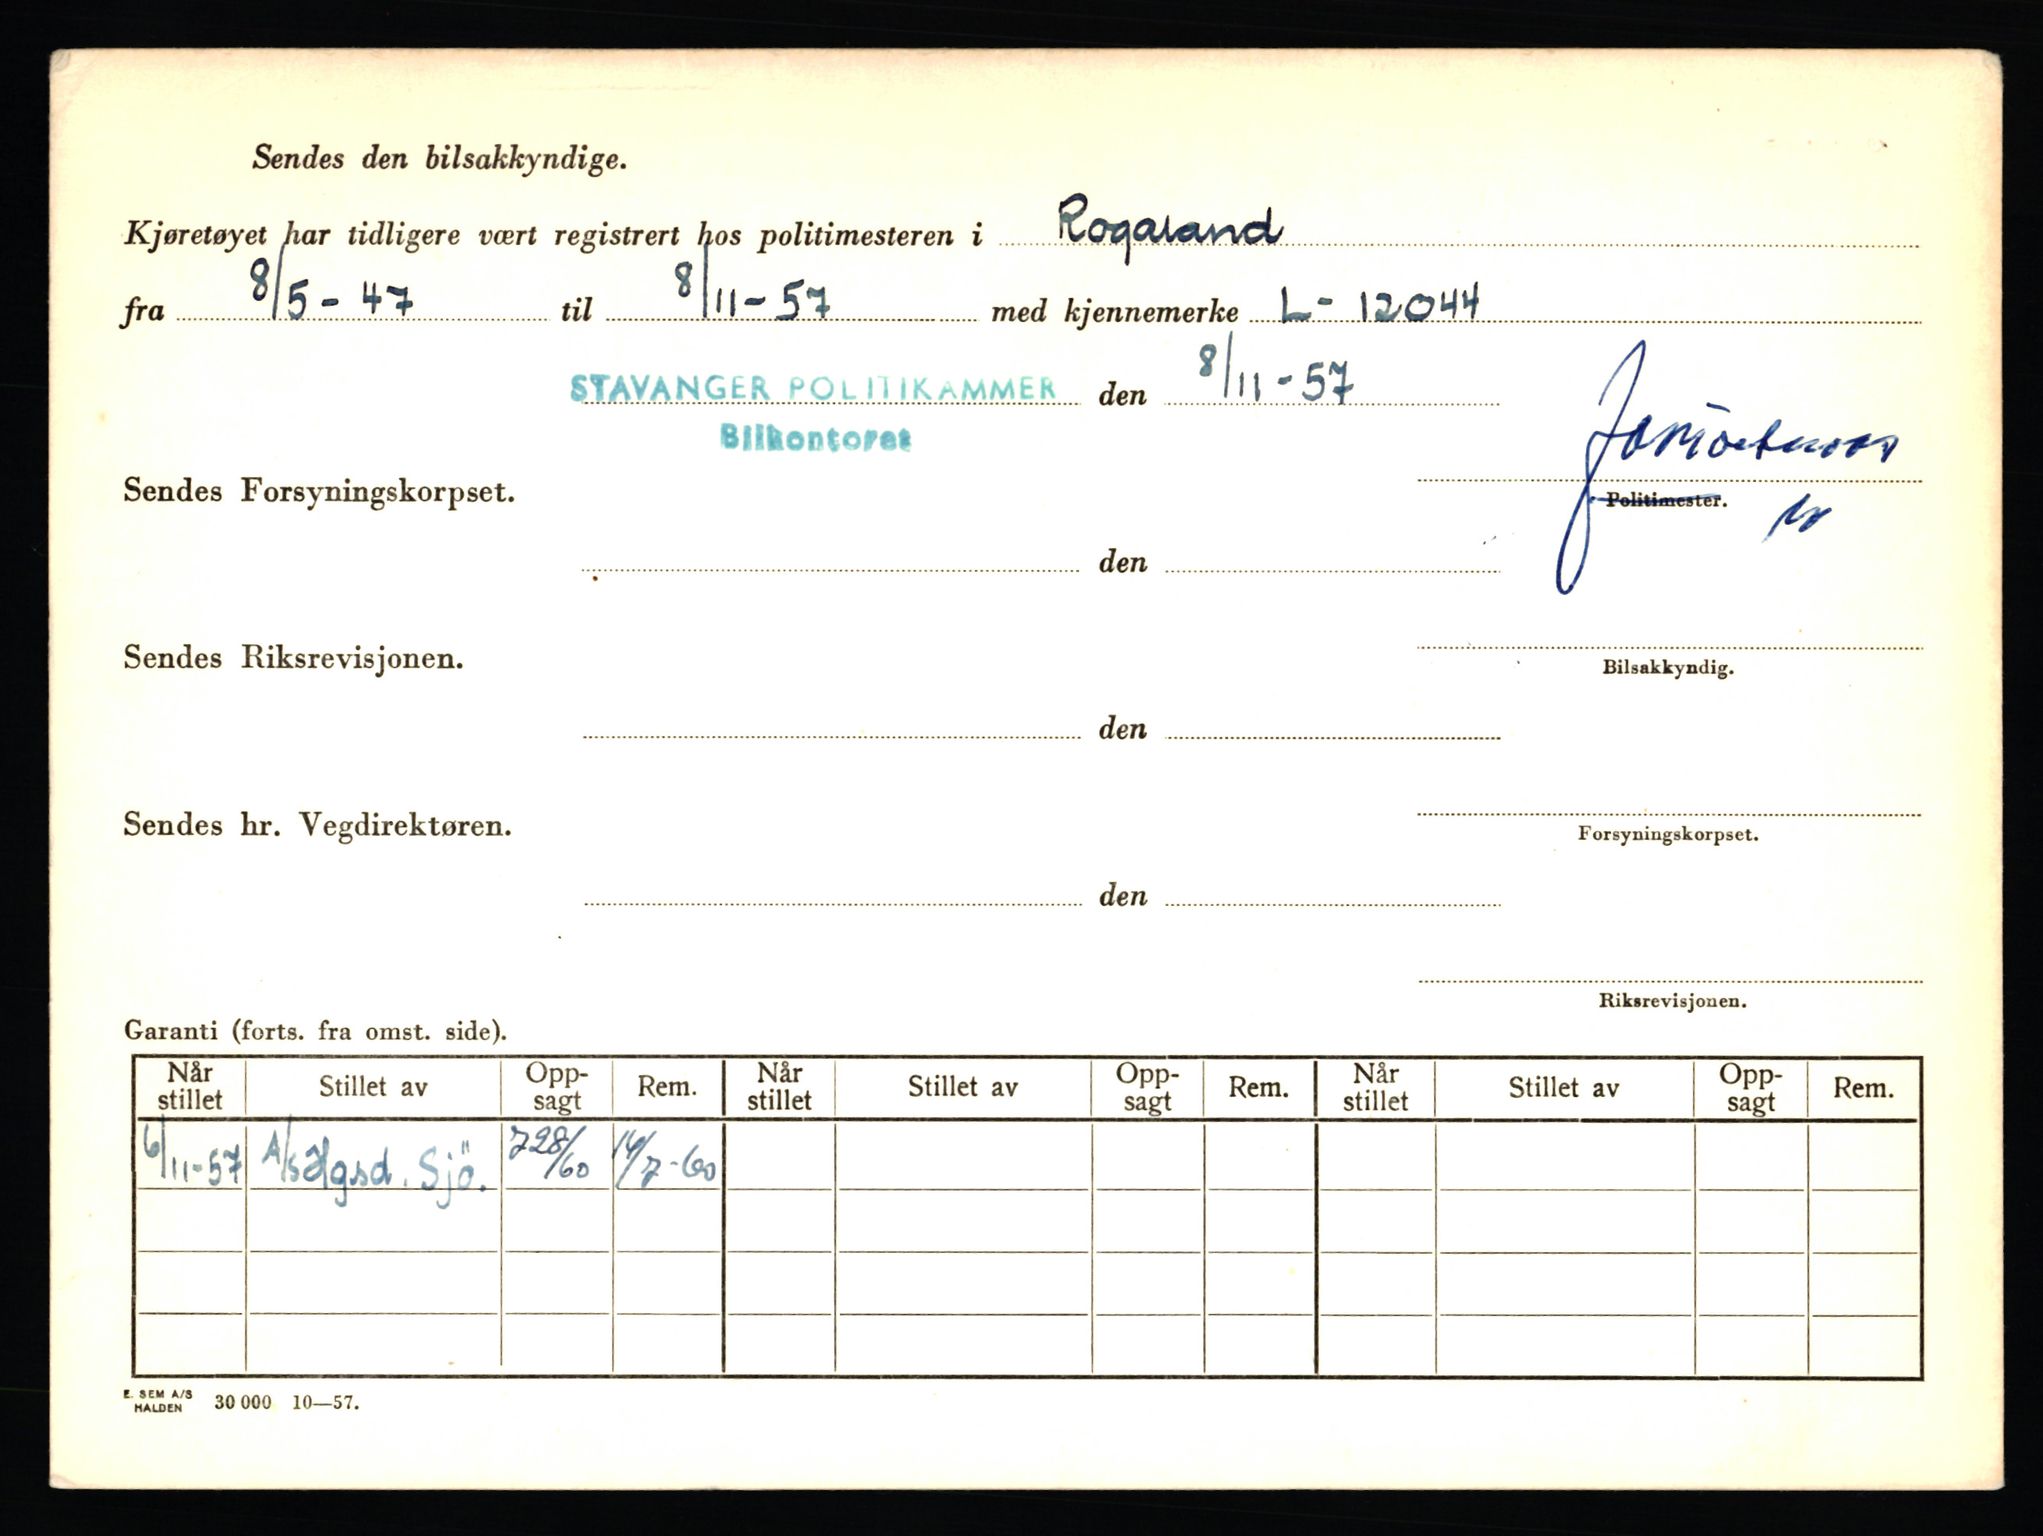 Sendes den bilsakkyndige.
Kjøretøyet har tidligere vært registrert hos politimesteren i Rogaland
fra 8/5-47 til 8/11-57 med kjennemerke L- 12044
STAVANGER POLITIKAMMER den 8/11-57
Bilkontoret
Sendes Forsyningskorpset.
Politimester.
den
Sendes Riksrevisjonen.
Bilsakkyndig.
den
Sendes hr. Vegdirektøren.
Forsyningskorpset.
den
Riksrevisjonen.
Garanti (forts. fra omst. side).
Når stillet Stillet av Opp-sagt Rem. Når stillet Stillet av Opp-sagt Rem. Når stillet Stillet av Opp-sagt Rem.
6/11-57 A/s Hgsd. Sjö. 728/60 14/7-60
E. SEM A/S
HALDEN 30 000 10—57.